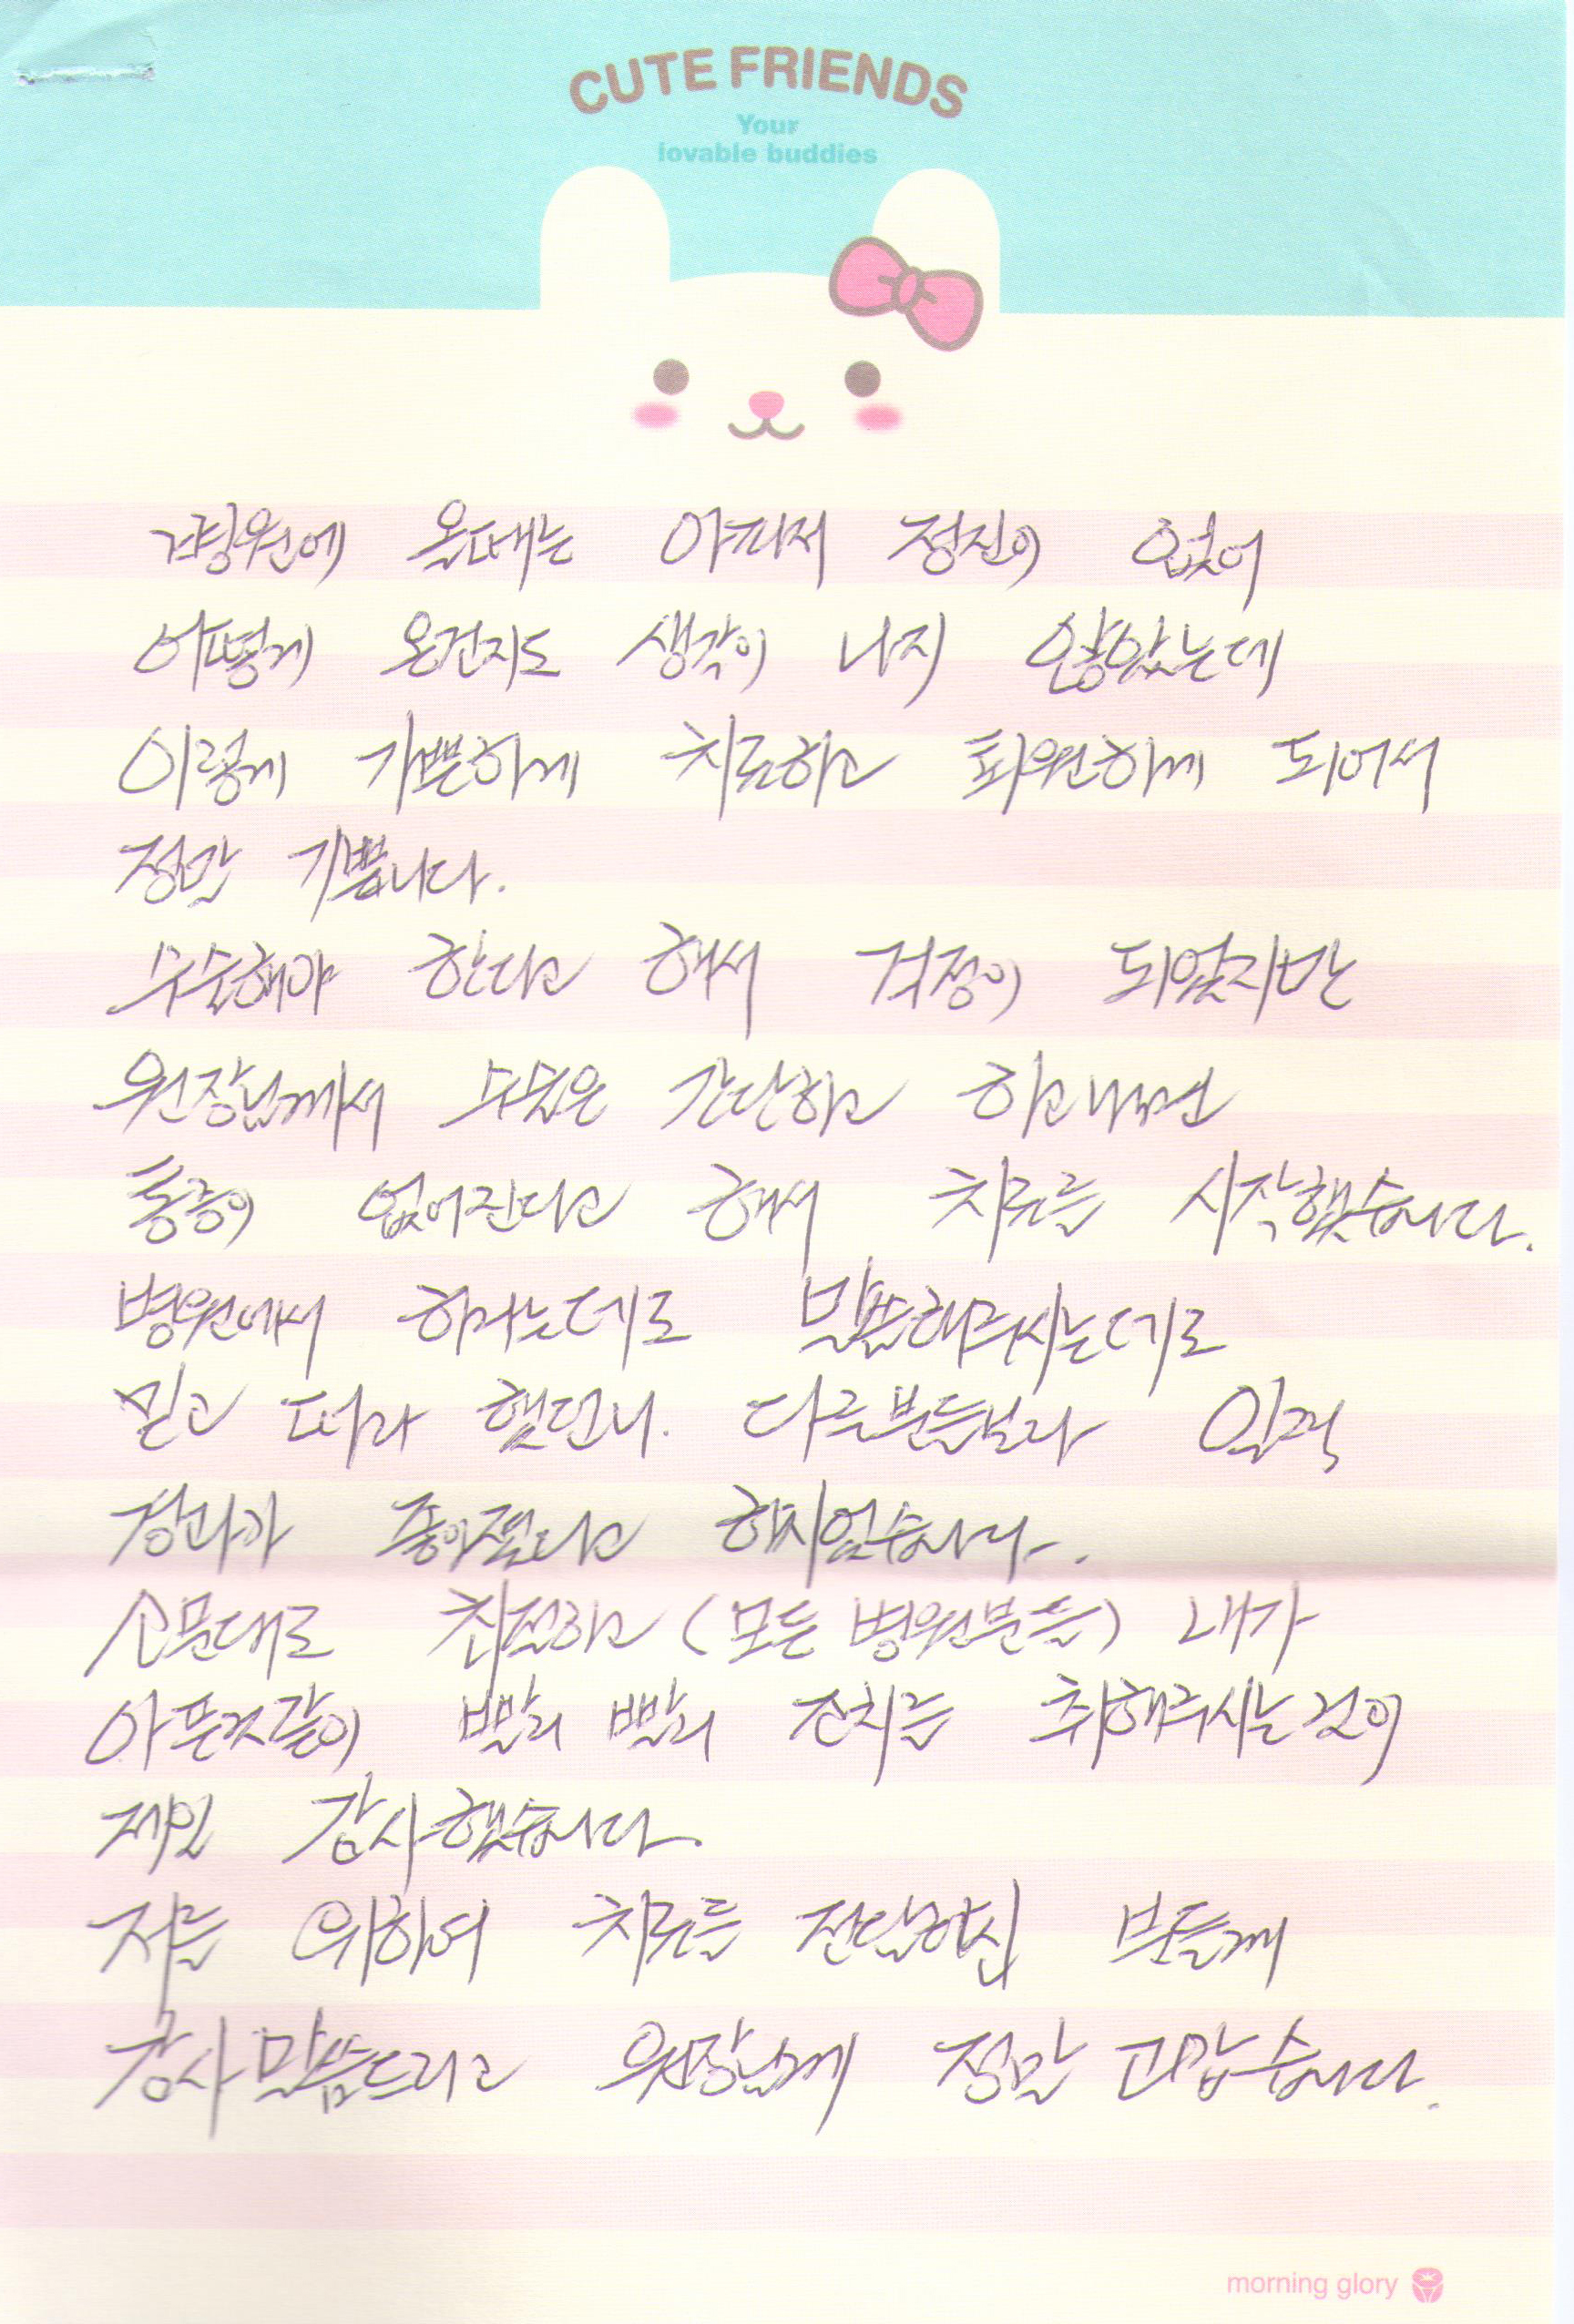 CUTE FRIENDS
Your
lovable buddies
병원에 올때는 아파서 정신이 없어
어떻게 온건지도 생각이 나지 않았는데
이렇게 가뿐하게 치료하고 퇴원하게 되어서
정말 기쁩니다.
수술해야 한다고 해서 걱정이 되었지만
원장님께서 수술은 간단하고 하고나면
통증이 없어진다고 해서 치료를 시작했습니다.
병원에서 하라는데로 말씀해주시는데로
믿고 따라 했더니. 다른분들보다 일찍
경과가 좋아졌다고 하시었습니다.
소문대로 친절하고 (모든 병원분들) 내가
아픈것같이 빨리 빨리 조치를 취해주시는것이
제일 감사했습니다.
저를 위하여 치료를 전담하신 분들께
감사말씀드리고 원장님께 정말 고맙습니다.
morning glory